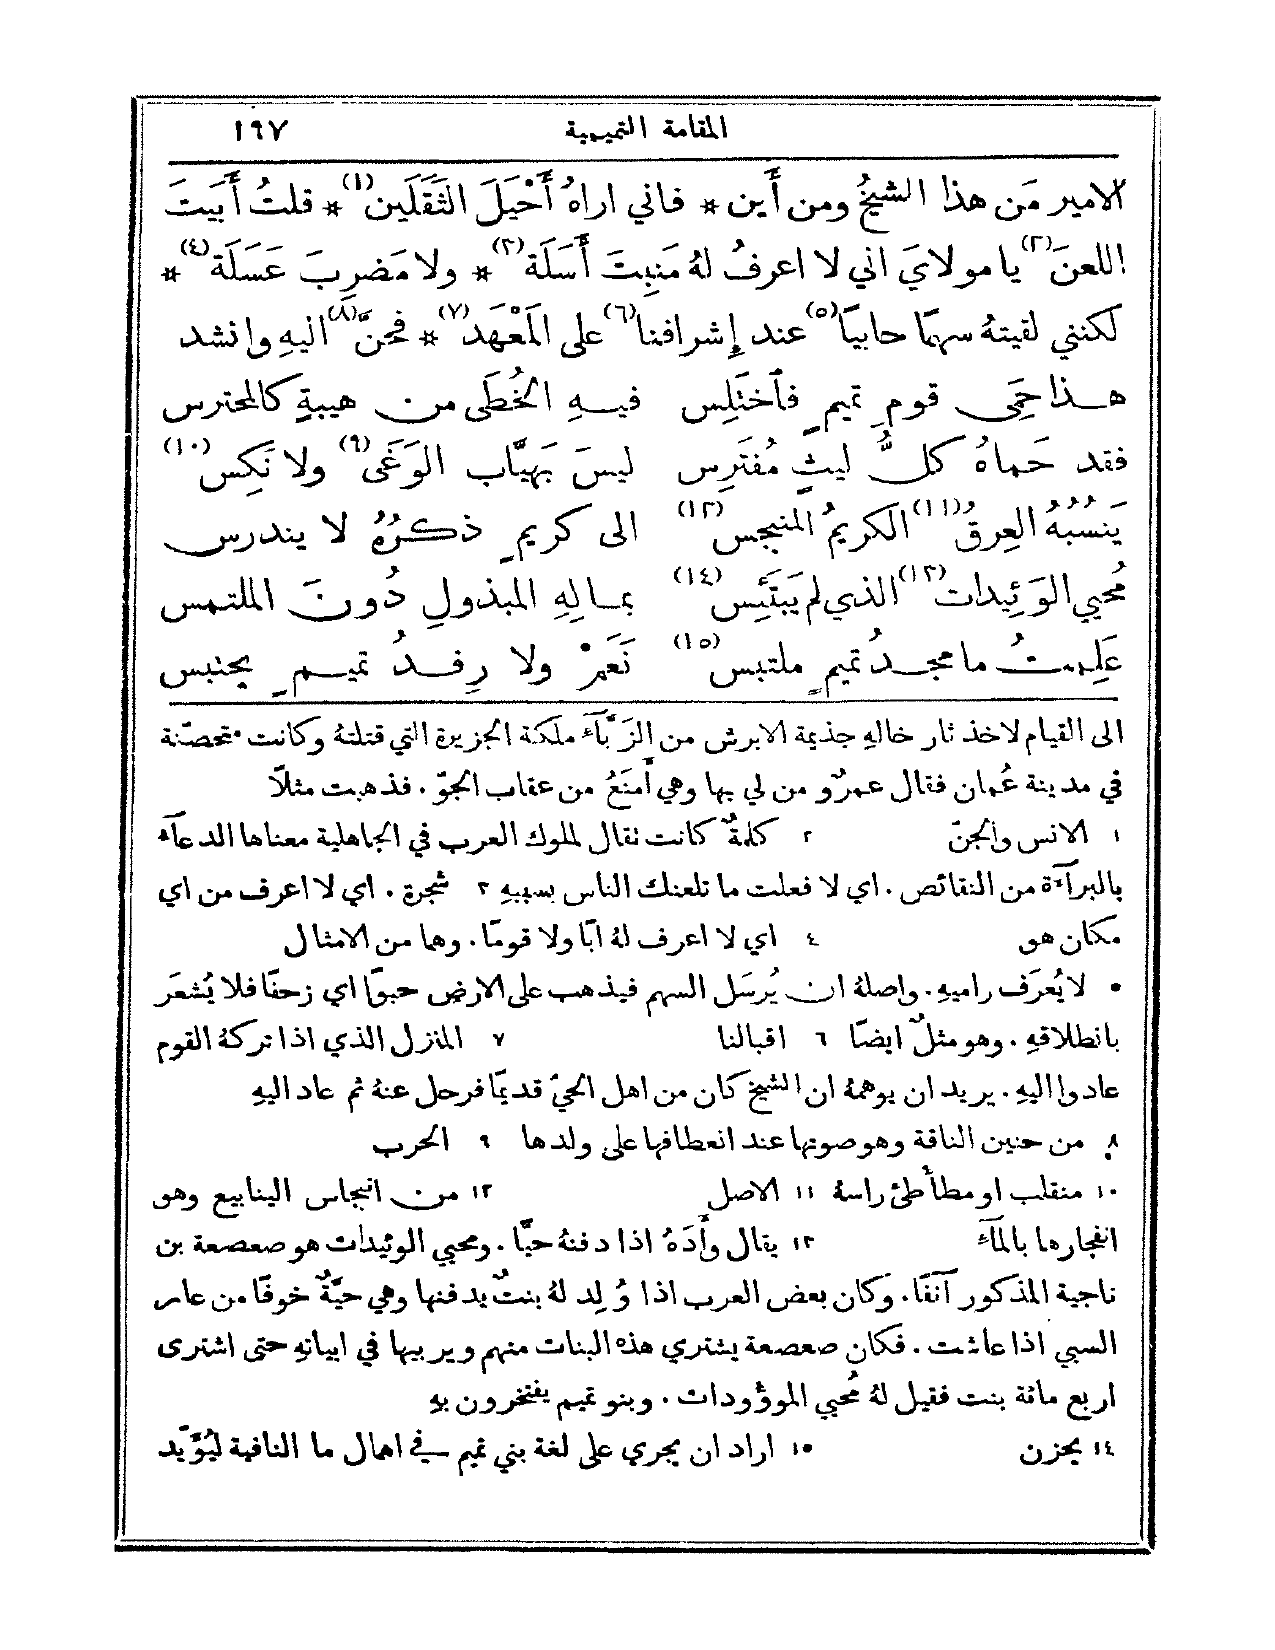 المقامة التميمية ١٦٧
الامير مَن هذا الشيخُ ومن أَين * فاني اراهُ أَحْيَلَ الثَقَلَين(١) * قلتُ أَبَيتَ
اللعنَ(٢) يا مولايَ اني لا اعرفُ لهُ مَنبِتَ أَسَلَة(٣) * ولا مَضرِبَ عَسَلَة(٤) *
لكنني لقيتهُ سهمًا حابيًا(٥) عند إشرافنا(٦) على المَعْهَد(٧) * فحنَّ(٨) اليهِ وانشد
هـذا حِمَى قومِ تميمٍ فأختَلِس فيـهِ الخُطَى من هيبةٍ كالمحترس
فقد حَماهُ كلُّ ليثٍ مُفتَرِس ليسَ بهيَّاب الوَغَى(٩) ولا نَكِس(١٠)
يَنسُبُهُ العِرقُ(١١) الكريمُ المنبجس(١٢) الى كريمٍ ذكرُهُ لا يندرس
مُحيي الوَئِيدات(١٣) الذي لم يَبتَئِس(١٤) بمـالِهِ المبذولِ دُونَ الملتمس
عَلِمتُ ما مجـدُ تميمٍ ملتبس(١٥) نَعَمْ ولا رِفـدُ تميـمٍ يحتبس
الى القيام لاخذ ثار خالهِ جذيمة الابرش من الزَبَّآء ملكة الجزيرة التي قتلتهُ وكانت متحصّنة
في مدينة عُمان فقال عمرٌو من لي بها وهي أَمنَعُ من عقاب الجوّ. فذهبت مثلًا
١ الانس والجنّ ٢ كلمةٌ كانت تقال لملوك العرب في الجاهلية معناها الدعآء
بالبرآءة من النقائص. اي لا فعلت ما تلعنك الناس بسببهِ ٣ شجرة. اي لا اعرف من اي
مكان هو ٤ اي لا اعرف لهُ ابًا ولا قومًا. وهما من الامثال
٥ لا يُعرَف راميهِ. واصلهُ ان يُرسَل السهم فيذهب على الارض حبوًا اي زحفًا فلا يُشعَر
بانطلاقهِ. وهو مثلٌ ايضًا ٦ اقبالنا ٧ المنزل الذي اذا تركهُ القوم
عادوا اليهِ. يريد ان يوهمهُ ان الشيخ كان من اهل الحيّ قديمًا فرحل عنهُ ثم عاد اليهِ
٨ من حنين الناقة وهو صوتها عند انعطافها على ولدها ٩ الحرب
١٠ منقلب او مطأطئ راسهُ ١١ الاصل ١٢ من انبجاس الينابيع وهو
انفجارها بالمآء ١٣ يقال وأَدَهُ اذا دفنهُ حيًّا. ومحيي الوئيدات هو صعصعة بن
ناجية المذكور آنفًا. وكان بعض العرب اذا وُلِد لهُ بنتٌ يدفنها وهي حيَّةٌ خوفًا من عار
السبي اذا عاشت. فكان صعصعة يشتري هذه البنات منهم ويربيها في ابياتهِ حتى اشترى
اربع مائة بنت فقيل لهُ مُحيي الموؤودات. وبنو تميم يفتخرون بهِ
١٤ يحزن ١٥ اراد ان يجري على لغة بني تميم في اهمال ما النافية ليُؤَيّد